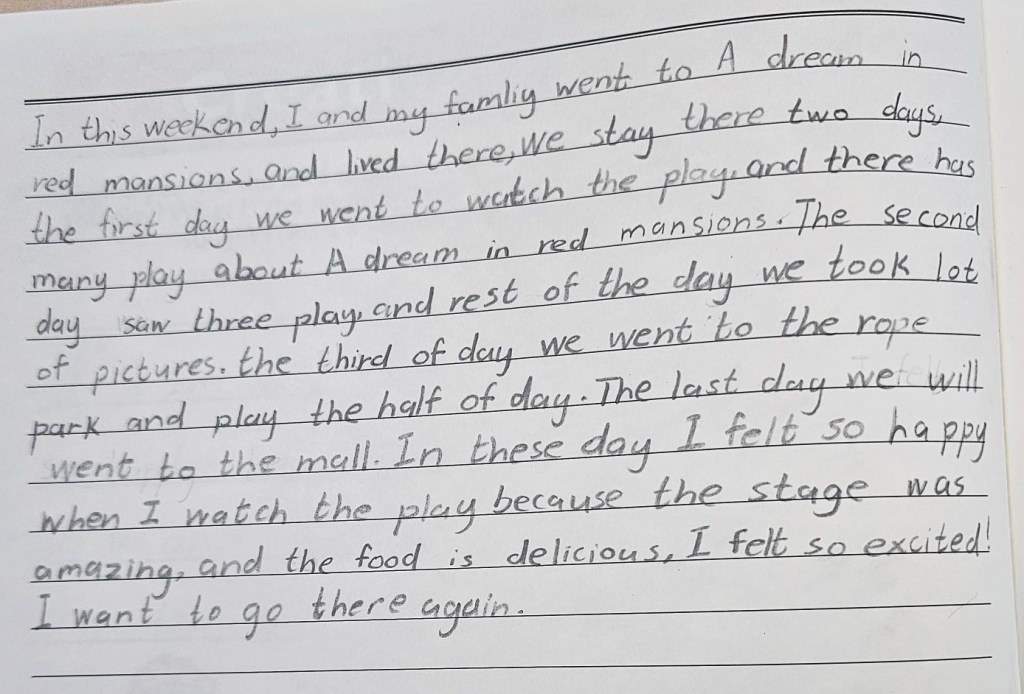 In this weekend, I and my famliy went to A dream in
red mansions, and lived there, We stay there two days,
the first day we went to watch the play, and there has
many play about A dream in red mansions. The second
day saw three play, and rest of the day we took lot
of pictures. the third of day we went to the rope
park and play the half of day. The last day we will
went to the mall. In these day I felt so happy
when I watch the play because the stage was
amazing, and the food is delicious, I felt so excited!
I want to go there again.